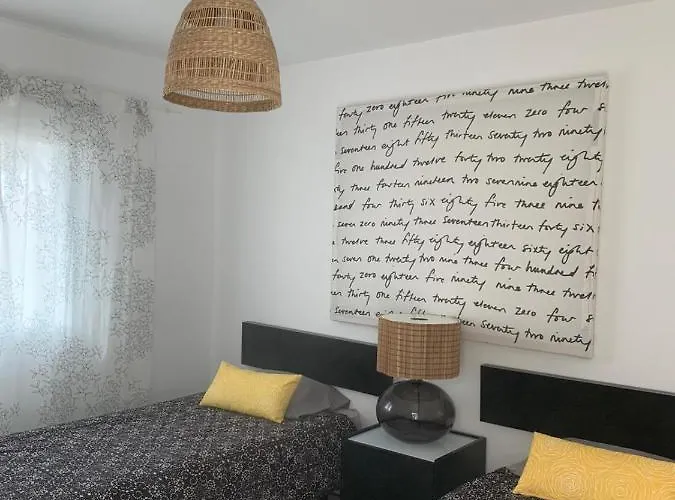 forty zero eighteen five ninety nine three twel
thirty one fifteen twenty eleven zero four 8
seventeen eight fifty thirteen seventy two ninety
five one hundred twelve forty two twenty eighty
three fourteen nineteen two seven nine eighteen
four thirty six eighty five three nine
seven zero ninety three seventeen thirteen forty six
twelve three fifty eighty eighteen sixty eight
seven one twenty two nine three four hundred f
forty zero eighteen five ninety nine three twel
thirty one fifteen twenty eleven zero four 8
seventeen eight seventy two ninety